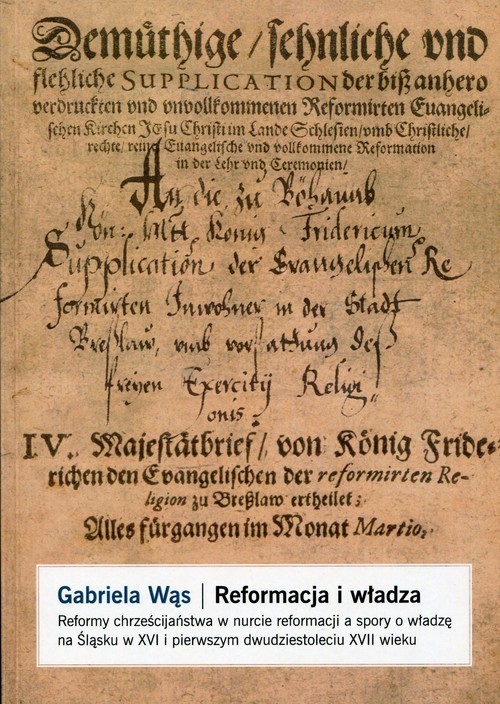 Demüthige / sehnliche vnd
flehliche SUPPLICATION der biß anhero
verdruckten vnd vnvollkommenen Reformirten Euangeli-
schen Kirchen Jesu Christi im Lande Schlesien / vmb Christliche /
rechte / reine Euangelische vnd vollkommene Reformation
in der Lehr vnd Ceremonien /
An die zu Böhaimb
Kön: Mtt König Fridericum
Supplication der Evangelischen Re
formirten Inwohner in der Stadt
Breßlaw, vmb verstattung deß
freyen Exercitij Religi
onis.
IV. Majestätbrief / von König Fride-
richen den Evangelischen der reformirten Re-
ligion zu Breßlaw ertheilet;
Alles fürgangen im Monat Martio.
Gabriela Wąs | Reformacja i władza
Reformy chrześcijaństwa w nurcie reformacji a spory o władzę
na Śląsku w XVI i pierwszym dwudziestoleciu XVII wieku